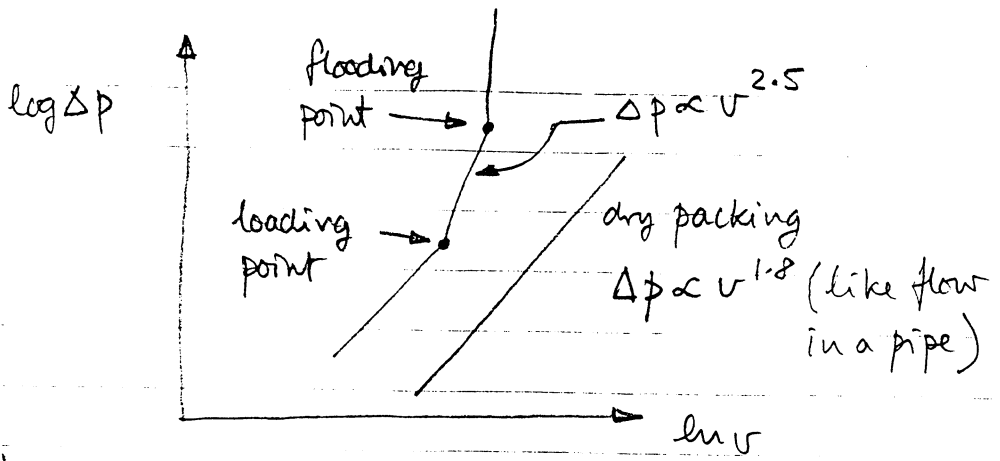 flooding
point
log Δp
Δp ∝ v^2.5
loading
point
dry packing
Δp ∝ v^1.8 (like flow
in a pipe)
ln v